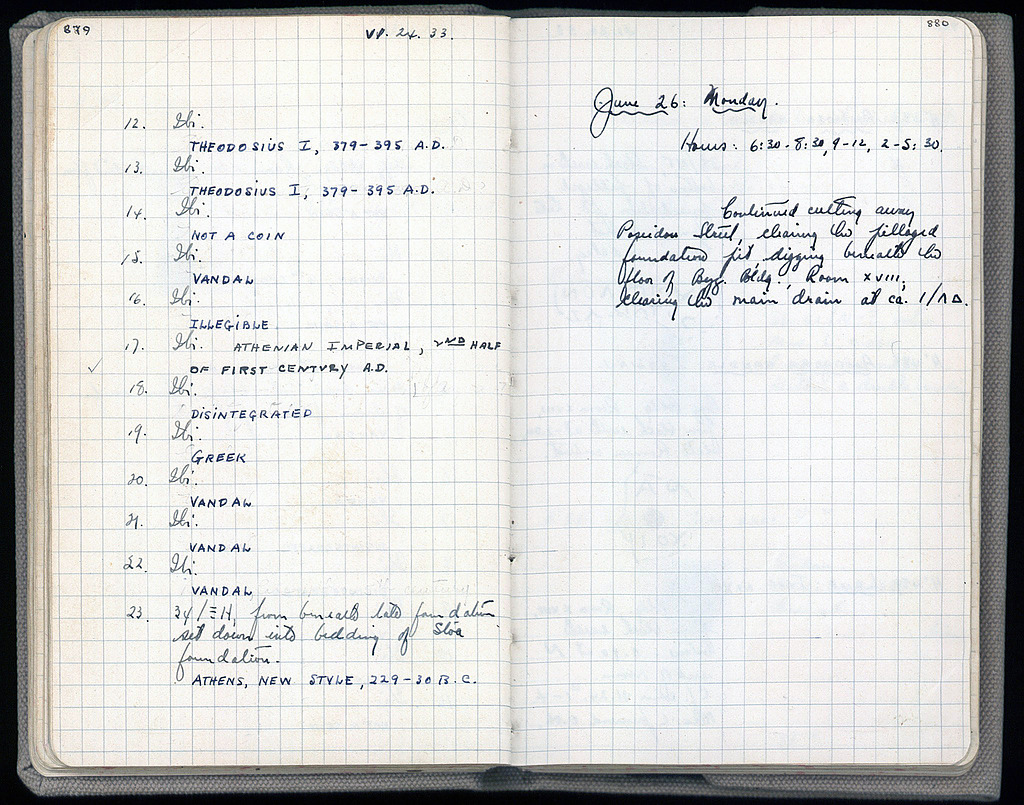 879
VI. 24. 33.
12. Ibi.
THEODOSIUS I, 379-395 A.D.
13. Ibi.
THEODOSIUS I, 379-395 A.D.
14. Ibi.
NOT A COIN
15. Ibi.
VANDAL
16. Ibi.
ILLEGIBLE
17. Ibi. ATHENIAN IMPERIAL, 2ND HALF
OF FIRST CENTURY A.D.
18. Ibi.
DISINTEGRATED
19. Ibi.
GREEK
20. Ibi.
VANDAL
21. Ibi.
VANDAL
22. Ibi.
VANDAL
23. 34/ΞH, from beneath late foundation
set down into bedding of Stoa
foundation.
ATHENS, NEW STYLE, 229-30 B.C.
880
June 26: Monday.
Hours: 6:30-8:30, 9-12, 2-5:30.
Continued cutting away
Poseidon Street, clearing the pillaged
foundation pit, digging beneath the
floor of Byz. Bldg., Room XVIII,
clearing the main drain at ca. 1/ΛΔ.